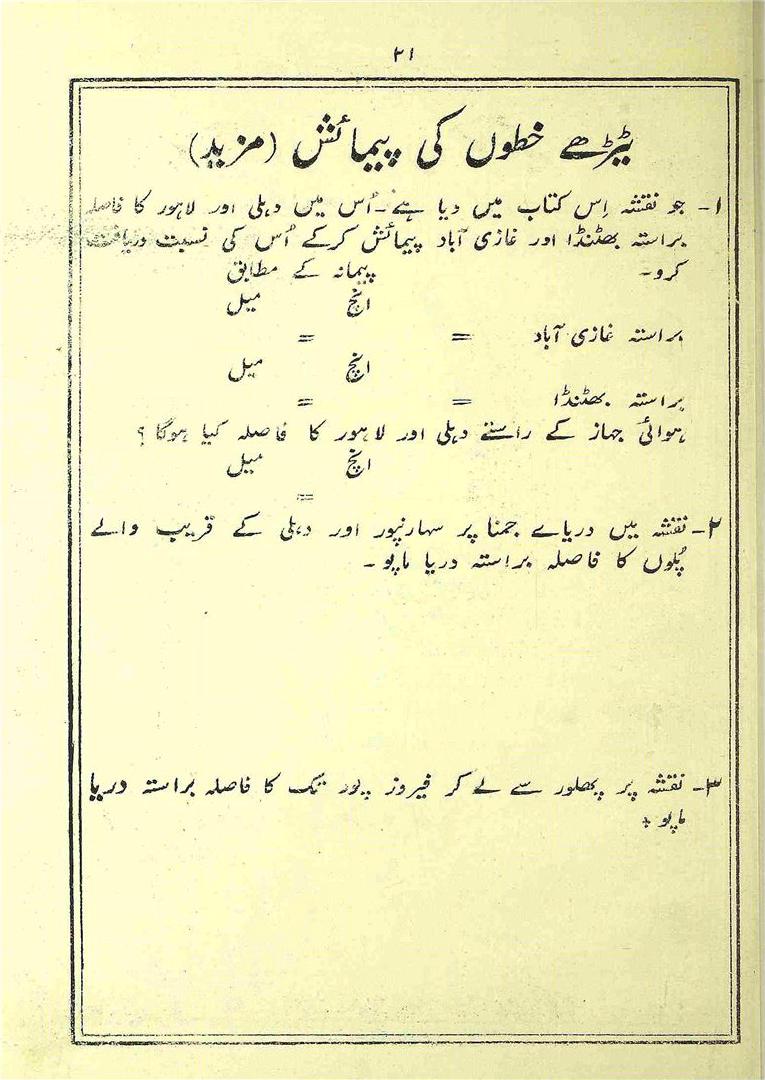 ۲۱
ٹیڑھے خطوں کی پیمائش (مزید)
۱- جو نقشہ اِس کتاب میں دیا ہے۔ اُس میں دہلی اور لاہور کا فاصلہ
براستہ بھٹنڈا اور غازی آباد پیمائش کرکے اُس کی نسبت دریافت
کرو۔ پیمانہ کے مطابق
انچ میل
براستہ غازی آباد = =
انچ میل
براستہ بھٹنڈا = =
ہوائی جہاز کے راستے دہلی اور لاہور کا فاصلہ کیا ہوگا؟
انچ میل
=
۲- نقشہ میں دریاے جمنا پر سہارنپور اور دہلی کے قریب والے
پُلوں کا فاصلہ براستہ دریا ماپو۔
۳- نقشہ پر پھلور سے لے کر فیروز پور تک کا فاصلہ براستہ دریا
ماپو +